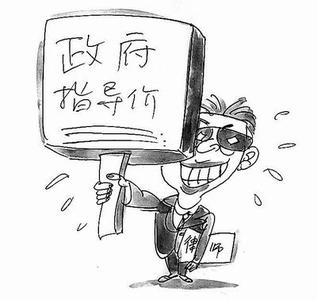 政府
指导价
律师